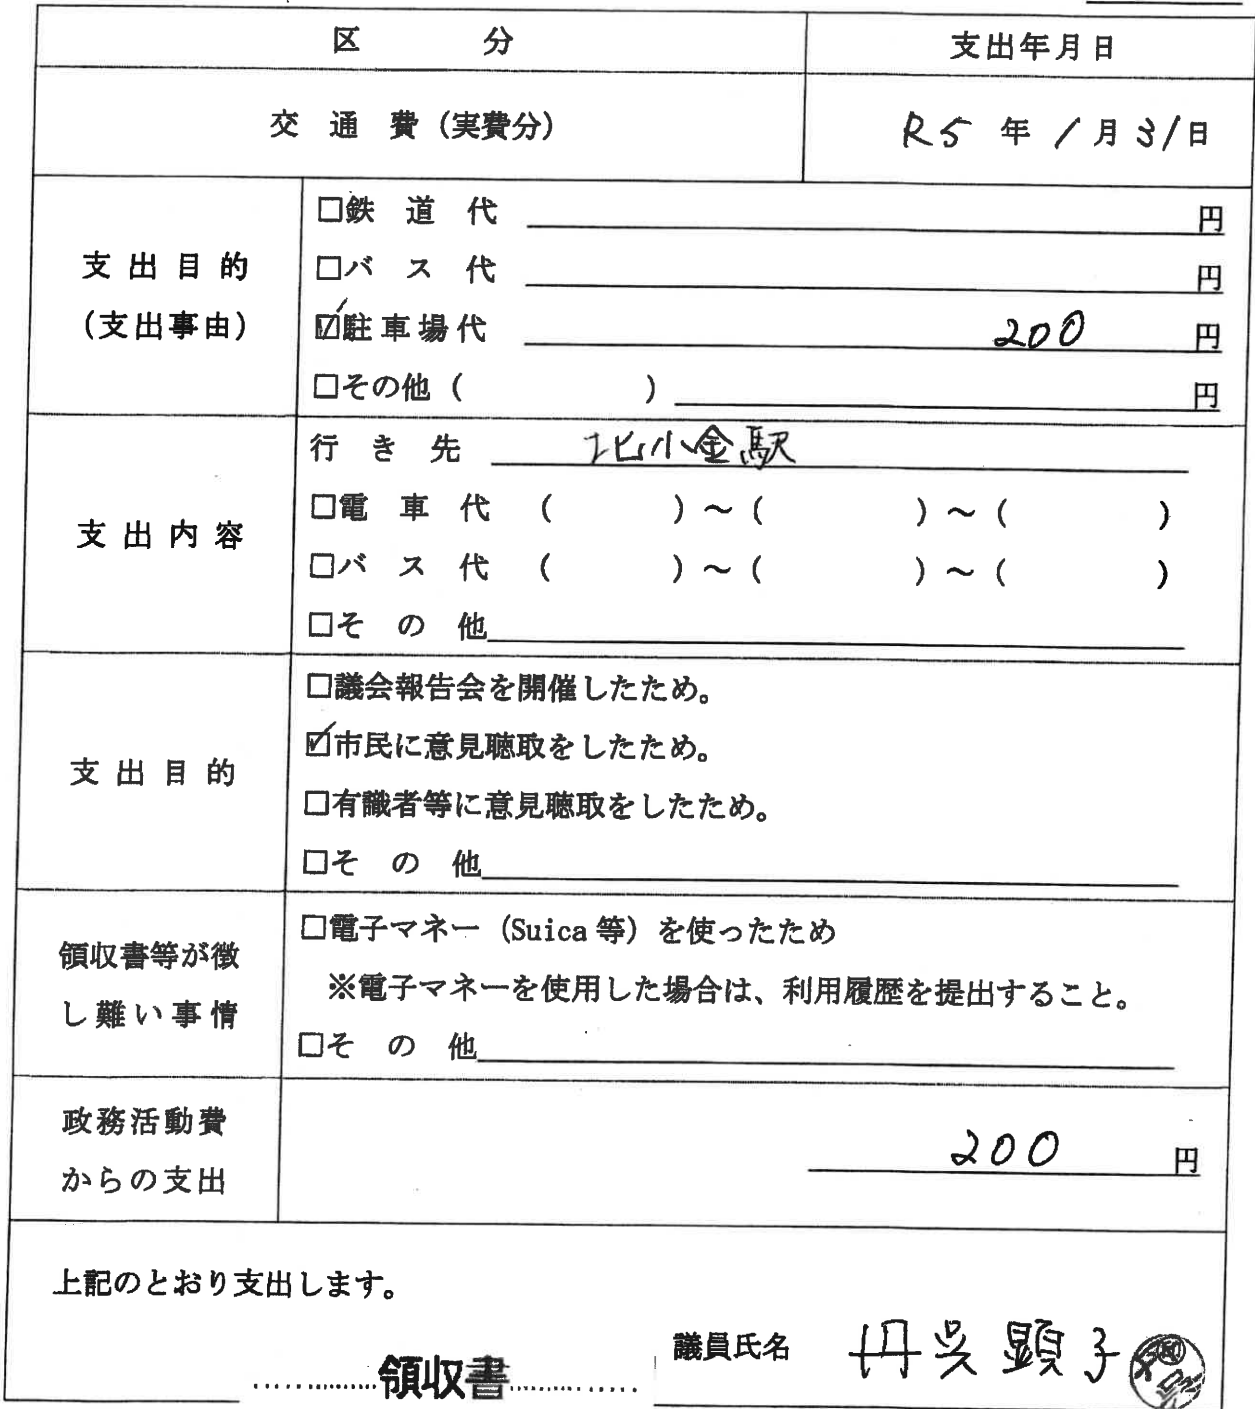 区 分 支出年月日
交 通 費 (実費分) R5 年 1月 31日
支 出 目 的
(支出事由)
□鉄 道 代 円
□バ ス 代 円
☑駐車場代 200 円
□その他 ( ) 円
支 出 内 容
行 き 先 北小金駅
□電 車 代 ( ) ～ ( ) ～ ( )
□バ ス 代 ( ) ～ ( ) ～ ( )
□そ の 他
支 出 目 的
□議会報告会を開催したため。
☑市民に意見聴取をしたため。
□有識者等に意見聴取をしたため。
□そ の 他
領収書等が徴
し難い事情
□電子マネー (Suica 等) を使ったため
※電子マネーを使用した場合は、利用履歴を提出すること。
□そ の 他
政務活動費
からの支出
200 円
上記のとおり支出します。
議員氏名 丹呉顕子
領収書